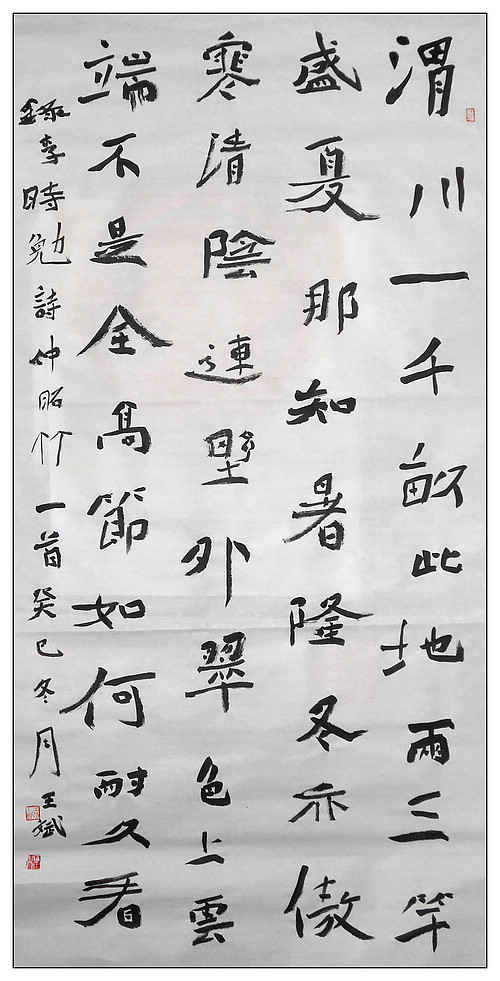 渭川一千畝此地兩三竿
盛夏那知暑隆冬亦傲
寒清陰連野外翠色上雲
端不是全高節如何耐久看
錄李時勉詩仲昭竹一首癸巳冬月王斌